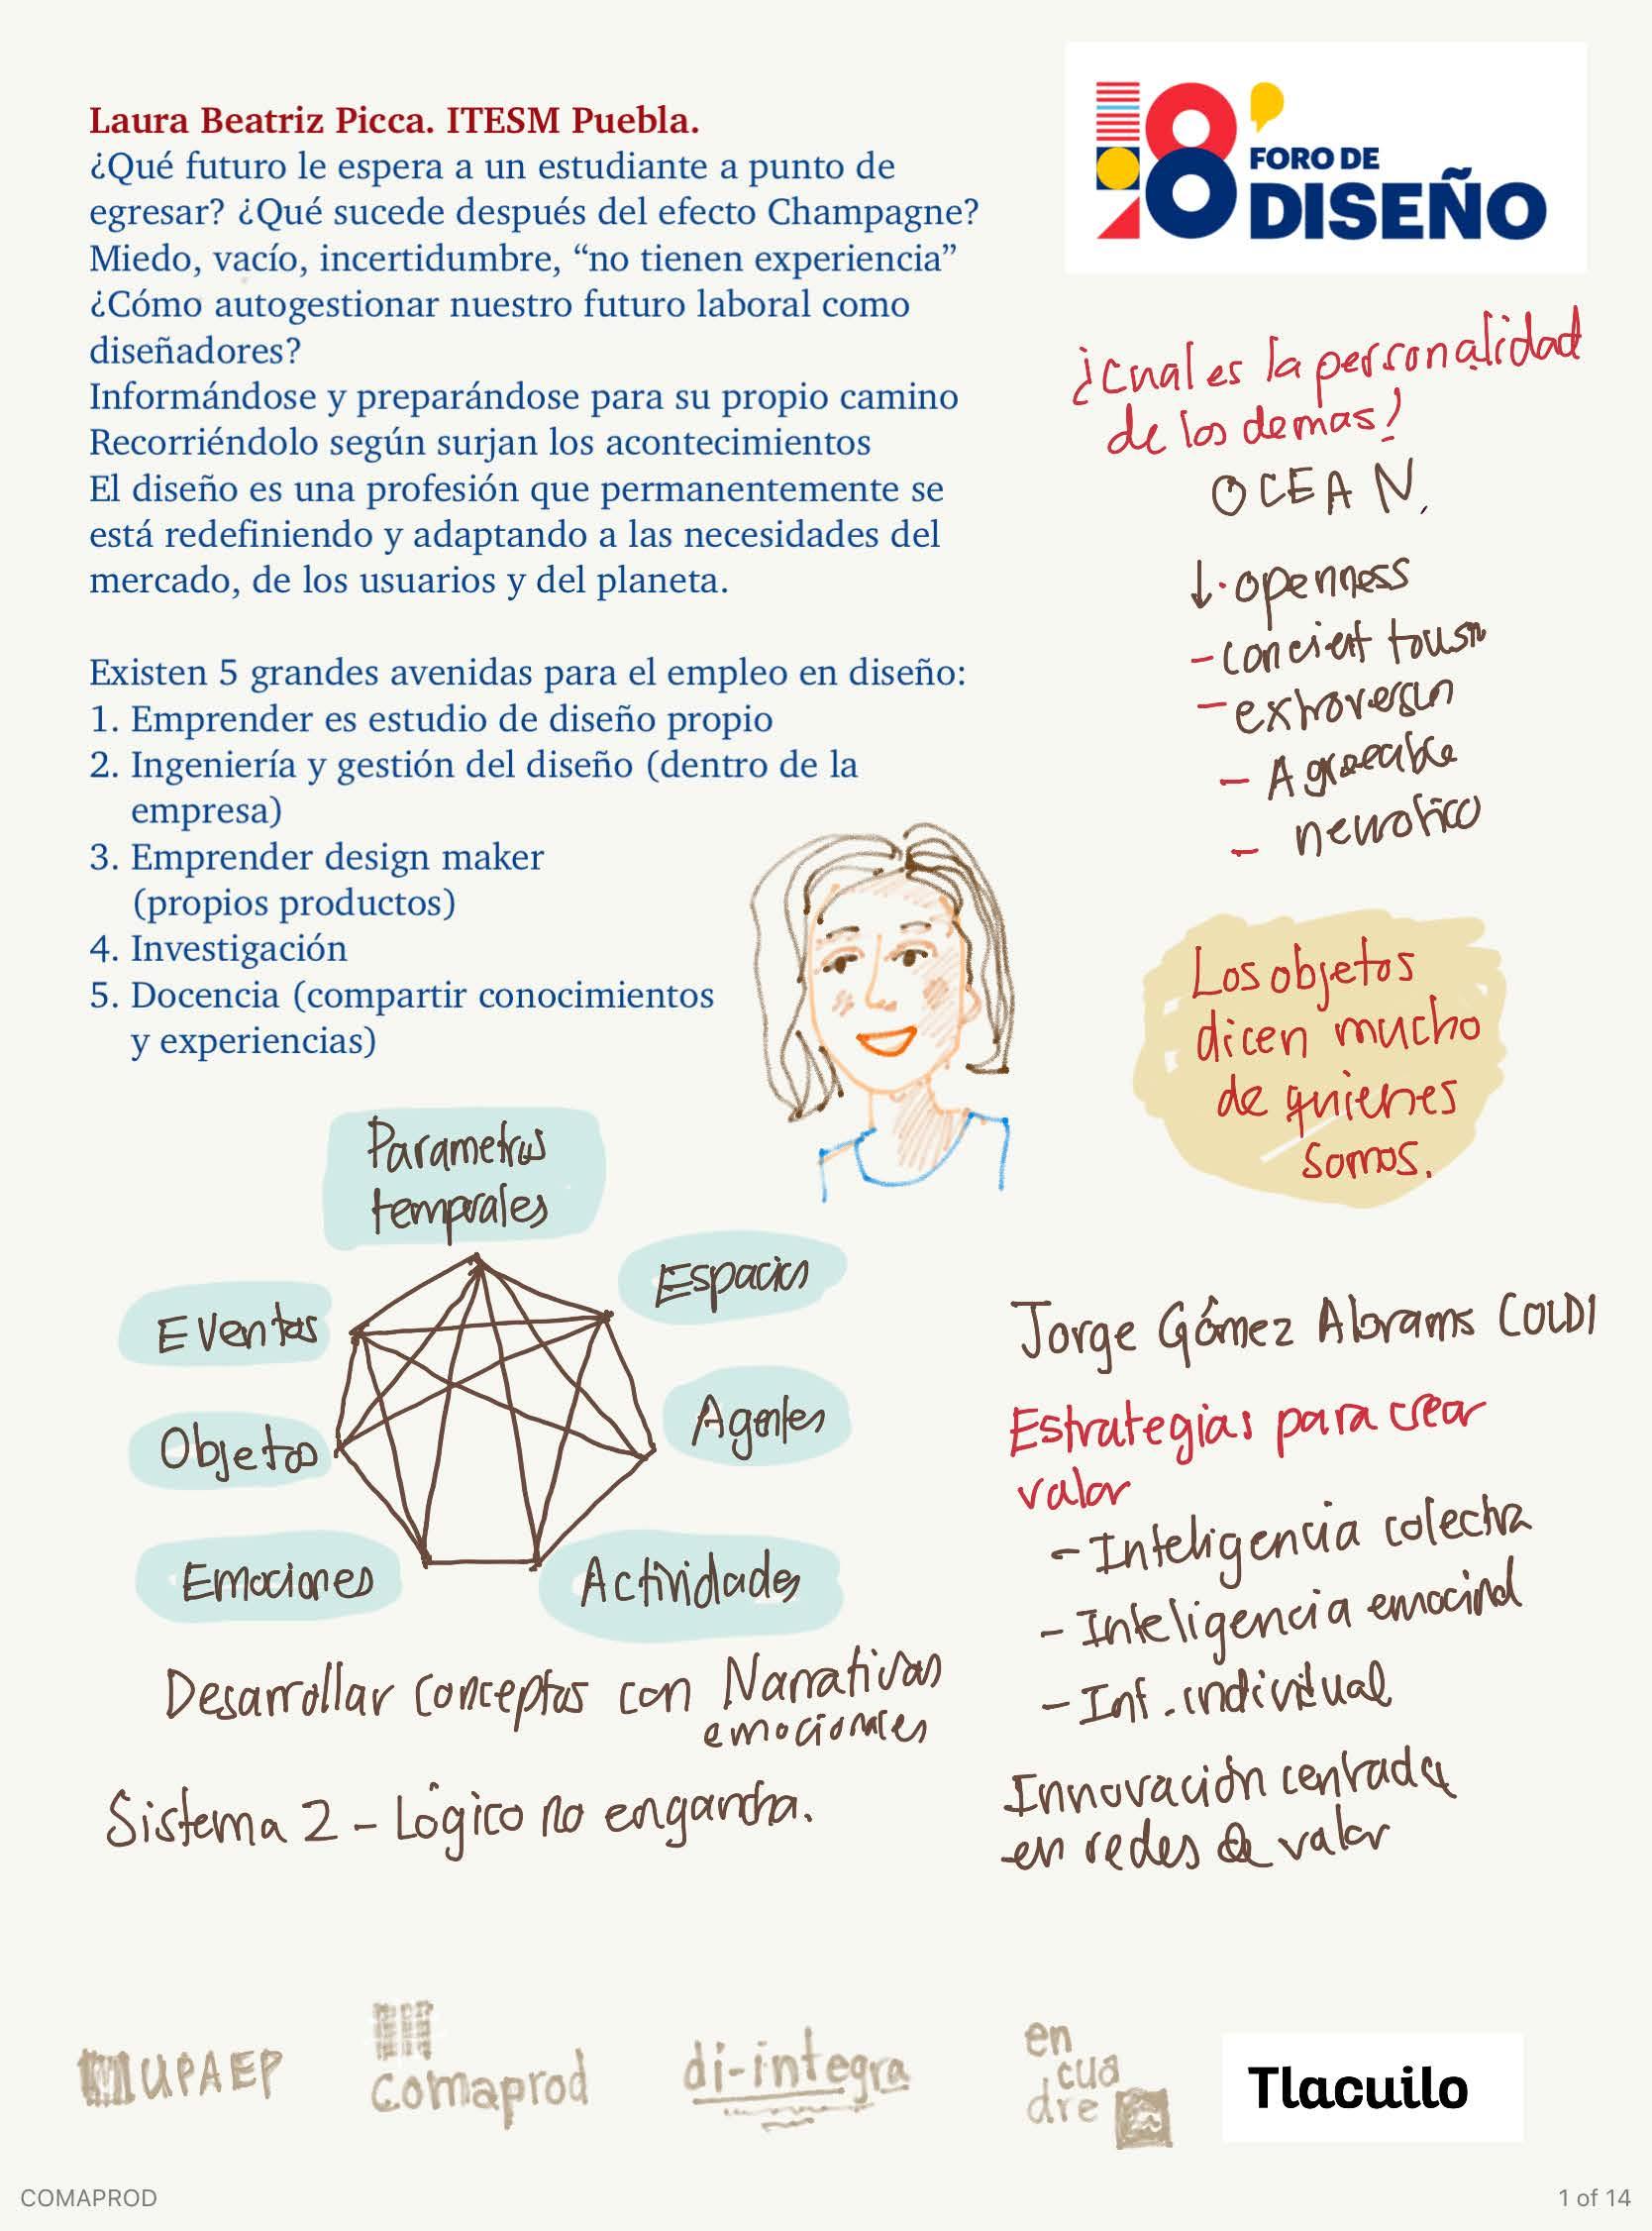 Laura Beatriz Picca. ITESM Puebla.
¿Qué futuro le espera a un estudiante a punto de
egresar? ¿Qué sucede después del efecto Champagne?
Miedo, vacío, incertidumbre, “no tienen experiencia”
¿Cómo autogestionar nuestro futuro laboral como
diseñadores?
Informándose y preparándose para su propio camino
Recorriéndolo según surjan los acontecimientos
El diseño es una profesión que permanentemente se
está redefiniendo y adaptando a las necesidades del
mercado, de los usuarios y del planeta.
Existen 5 grandes avenidas para el empleo en diseño:
1. Emprender es estudio de diseño propio
2. Ingeniería y gestión del diseño (dentro de la
empresa)
3. Emprender design maker
(propios productos)
4. Investigación
5. Docencia (compartir conocimientos
y experiencias)
18
FORO DE
DISEÑO
¿Cual es la personalidad
de los demas!
OCEAN.
↓· openness
-
- extroversun
- Agreeable
- neurotico
Los objetos
dicen mucho
de quienes
somos.
Parametros
temporales
Espacios
Eventos
Agentes
Objetos
Emociones
Actividades
Desarrollar conceptos con Narrativas
emocionales
Sistema 2 - Lógico no engancha.
Jorge Gómez Abrams
Estrategias para crear
valor
- Inteligencia colectiva
- Inteligencia emocional
- Int. individual
Innovación centrada
en redes de valor
UPAEP
Comaprod
di-integra
en
cua
dre
Tlacuilo
COMAPROD
1 of 14